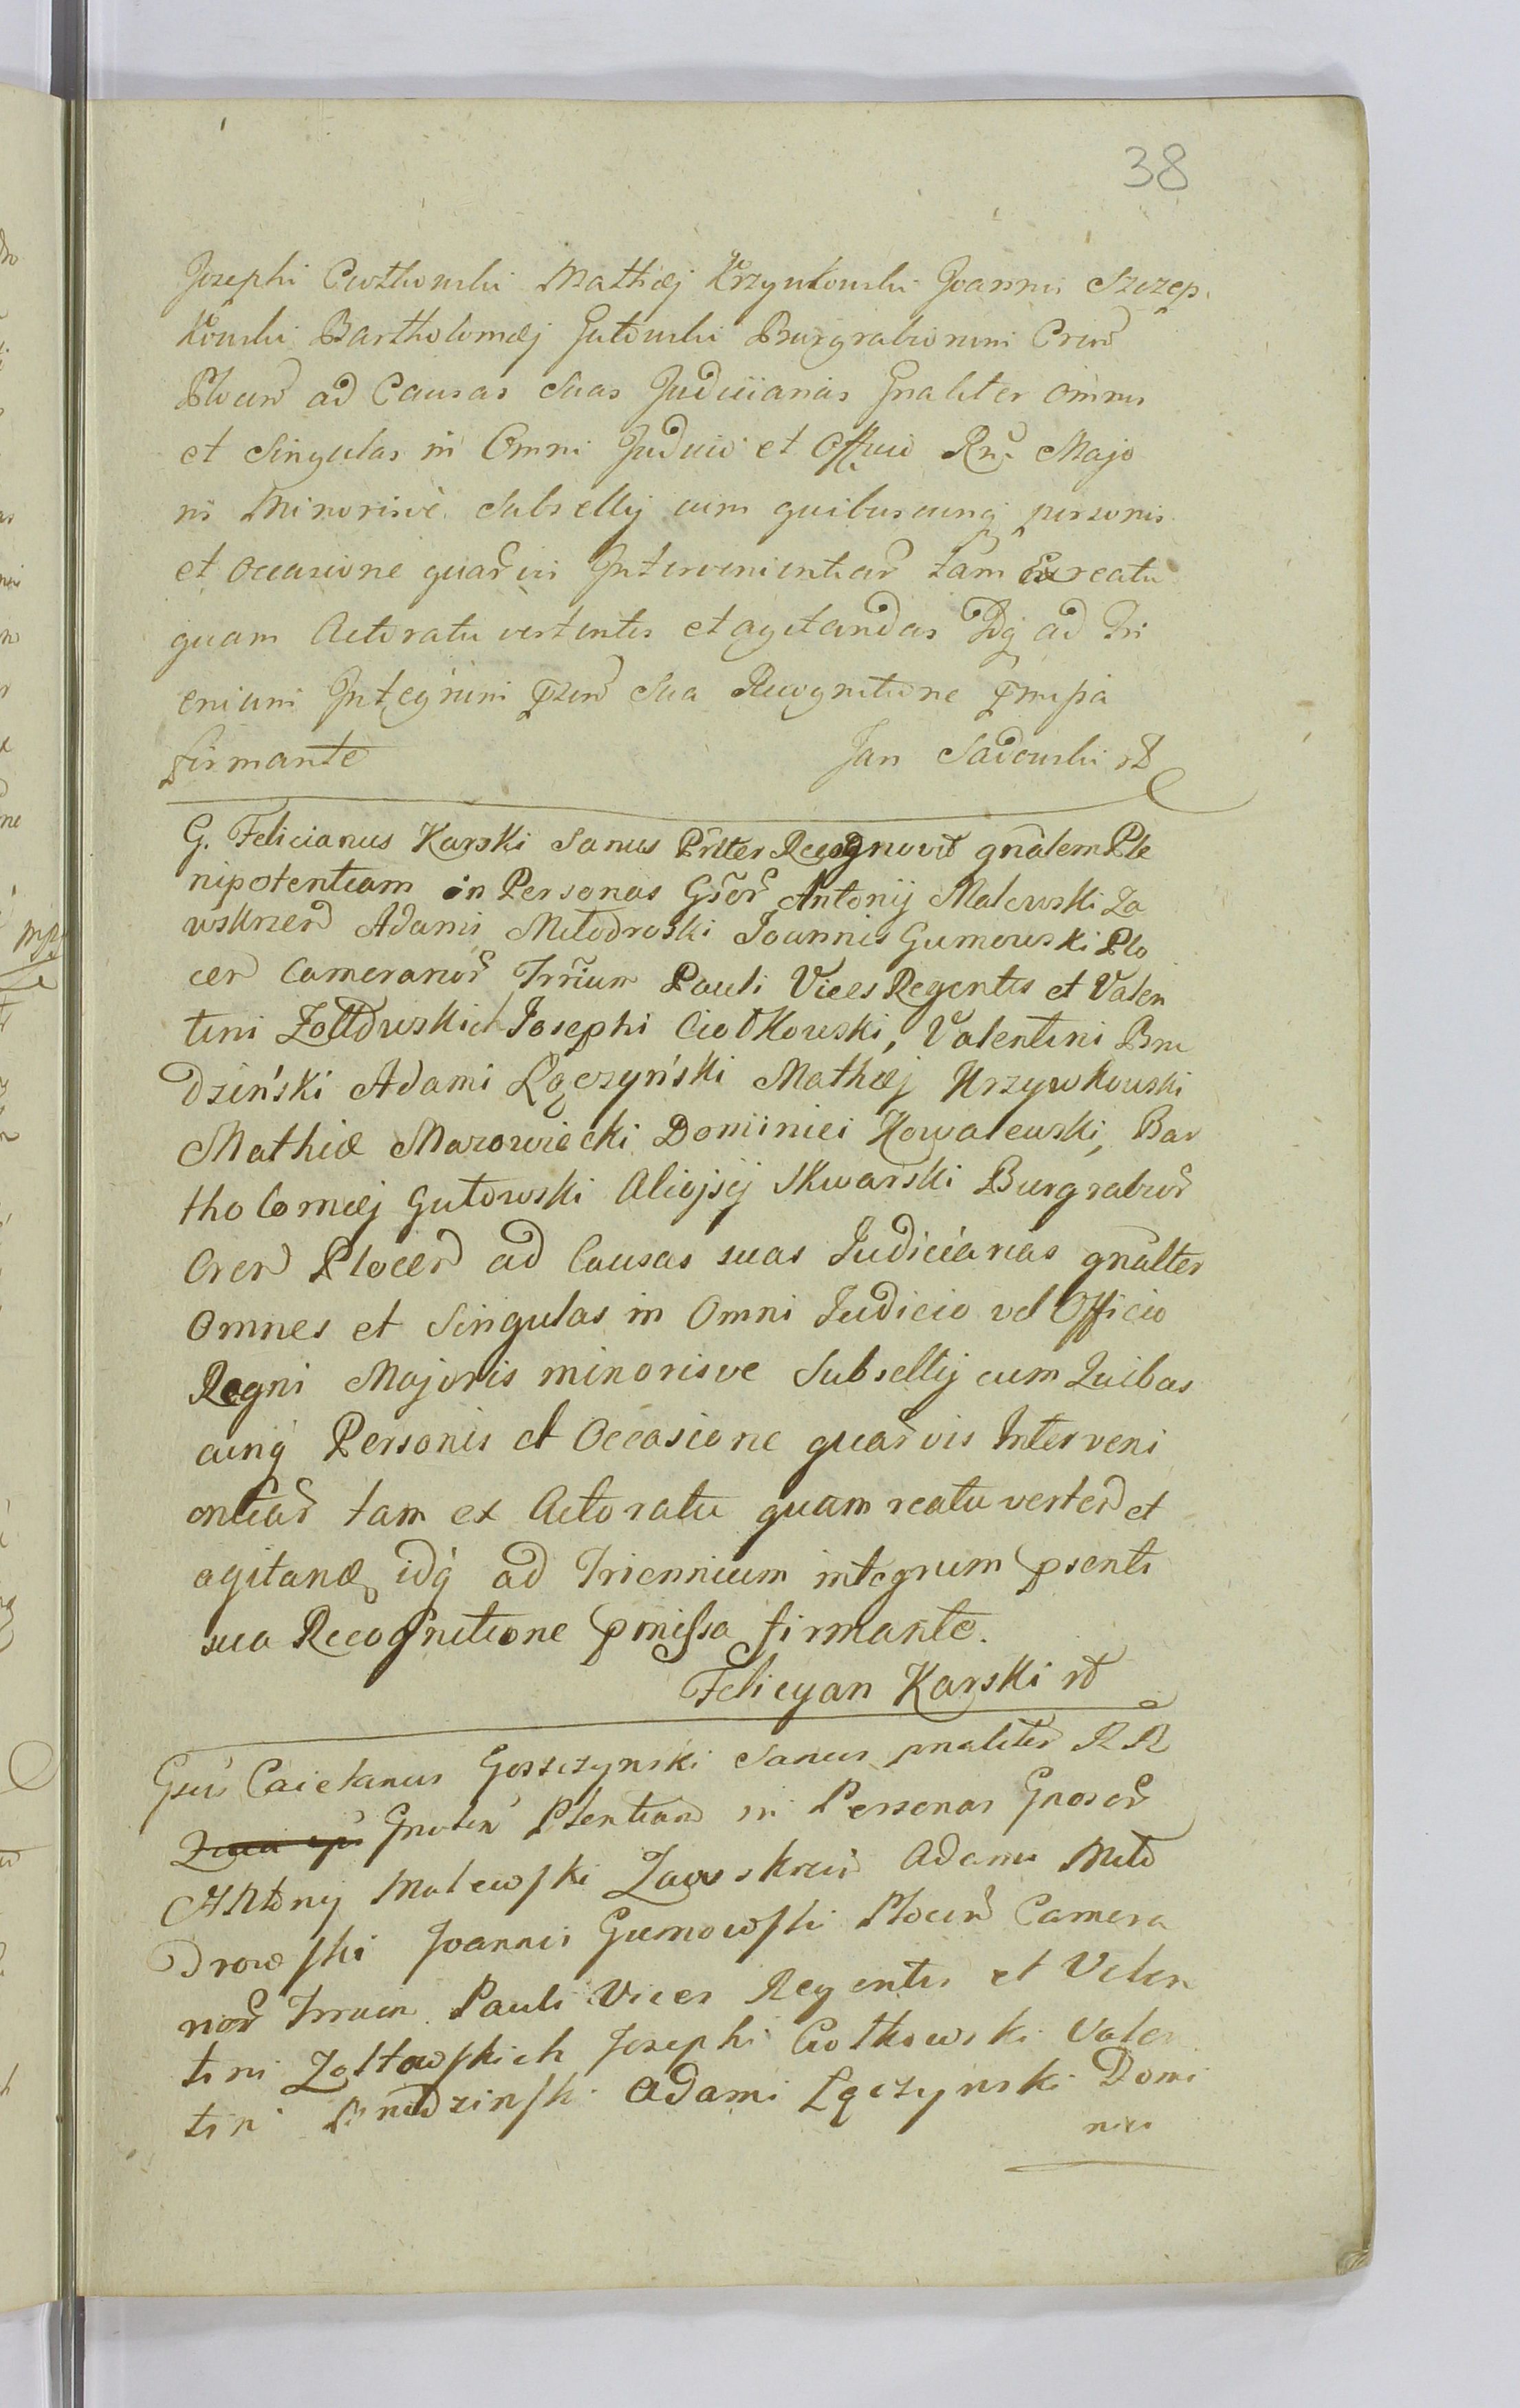 38
Josephi Ciotkowski Mathiæj Krzywkowski Joannis Szczep.
kowski Bartholomæj Gutowski Burgrabionum Cren̄
Plocen̄ ad Causas Suas Judicianas Gnaliter omnes
et Singulas in Omni Judicio et Officio Rn̄i Majo
ris Minorisve Subsellij cum quibuscunq personis
et Occasione quar̄vis Intervenientiar̄ tam Ex reatu
quam Actoratu vertentes et agitandas Idq ad Tri
enium Integrum p̄zen̄ Sua Recognitione p̄misſa
firmante Jan Sadowski rd
G. Felicianus Karski Sanus Pn̄lter Recognovit gnālem Ple
nipotentiam in Personas Gsr̄or̄ Antonij Malewski Za
wskrzen̄ Adami Miłodroski Joannis Gumowski Plo
cen̄ Cameranor̄ Trr̄ium Pauli Vices Regentis et Valen
tini Zołtowskich Josephi Ciotkowski, Valentini Bru
dziński Adami Łączyński Mathæj Krzywkowski
Mathiæ Mazowiecki Dominici Kowalewski, Bar
tholomæj Gutowski Aliojsij Skwarski Burgrabior̄
Cren̄ Plocen̄ ad Causas suas Judicianas gnālter
Omnes et Singulas in Omni Judicio vel Officio
Regni Majoris minorisve Subsellij cum Quibus
cunq Personis et Occasione quar̄vis Interveni
entiar̄ tam ex Actoratu quam reatu verten̄ et
agitand, idq ad Triennium integrum p̄senti
sua Recognitione p̄misſa firmante.
Felicyan Karski rd
Gsus Caietanus Goszczynski Sanus pnaliter RR
Gnalem Plentiam in Personas Gnosor̄
Antonij Malewſki Zawskrzen̄ Adami Miło
drowſki Joannis Gumowſki Plocen̄ Camera
nor̄ Trrium Pauli Vices Regentis et Valen
tini Zołtowſkich Josephi Ciotkowski Valen
tini Brudzinſki Adami Łączynski Domi
nici